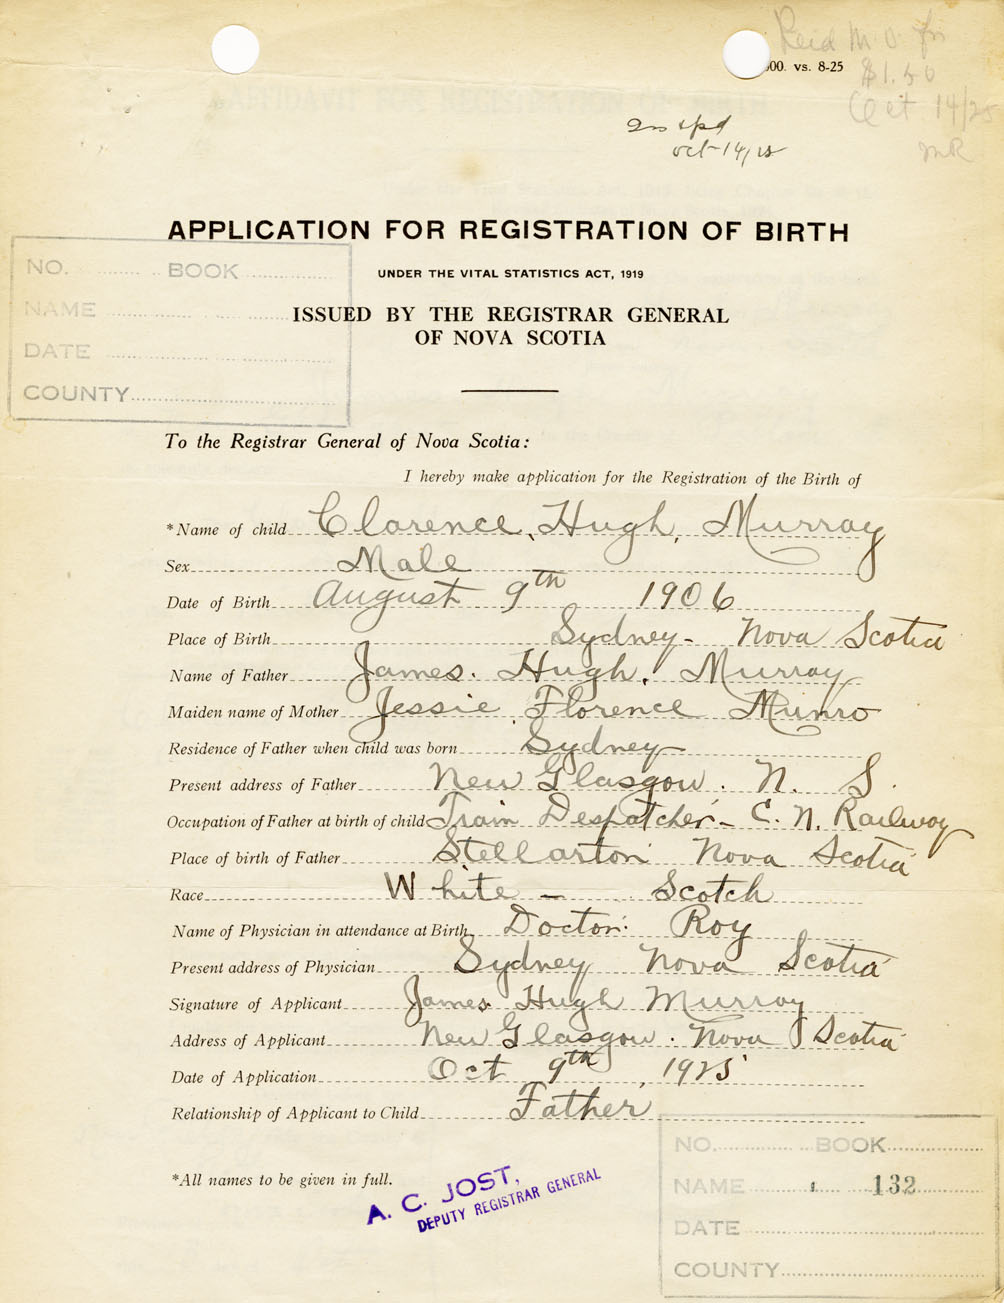 $1.50
Oct 14/25
00. vs. 8-25
MR
Oct 14/25
APPLICATION FOR REGISTRATION OF BIRTH
UNDER THE VITAL STATISTICS ACT, 1919
ISSUED BY THE REGISTRAR GENERAL
OF NOVA SCOTIA
NO. BOOK
NAME
DATE
COUNTY
To the Registrar General of Nova Scotia:
I hereby make application for the Registration of the Birth of
*Name of child Clarence, Hugh, Murray
Sex Male
Date of Birth August 9th 1906
Place of Birth Sydney - Nova Scotia
Name of Father James. Hugh. Murray
Maiden name of Mother Jessie Florence Munro
Residence of Father when child was born Sydney
Present address of Father New Glasgow. N. S.
Occupation of Father at birth of child Train Despatcher - C. N. Railway
Place of birth of Father Stellarton Nova Scotia
Race White - Scotch
Name of Physician in attendance at Birth Doctor Roy
Present address of Physician Sydney Nova Scotia
Signature of Applicant James Hugh Murray
Address of Applicant New Glasgow. Nova Scotia
Date of Application Oct 9th, 1925
Relationship of Applicant to Child Father
*All names to be given in full.
A. C. JOST,
DEPUTY REGISTRAR GENERAL
NO. BOOK
NAME 132
DATE
COUNTY